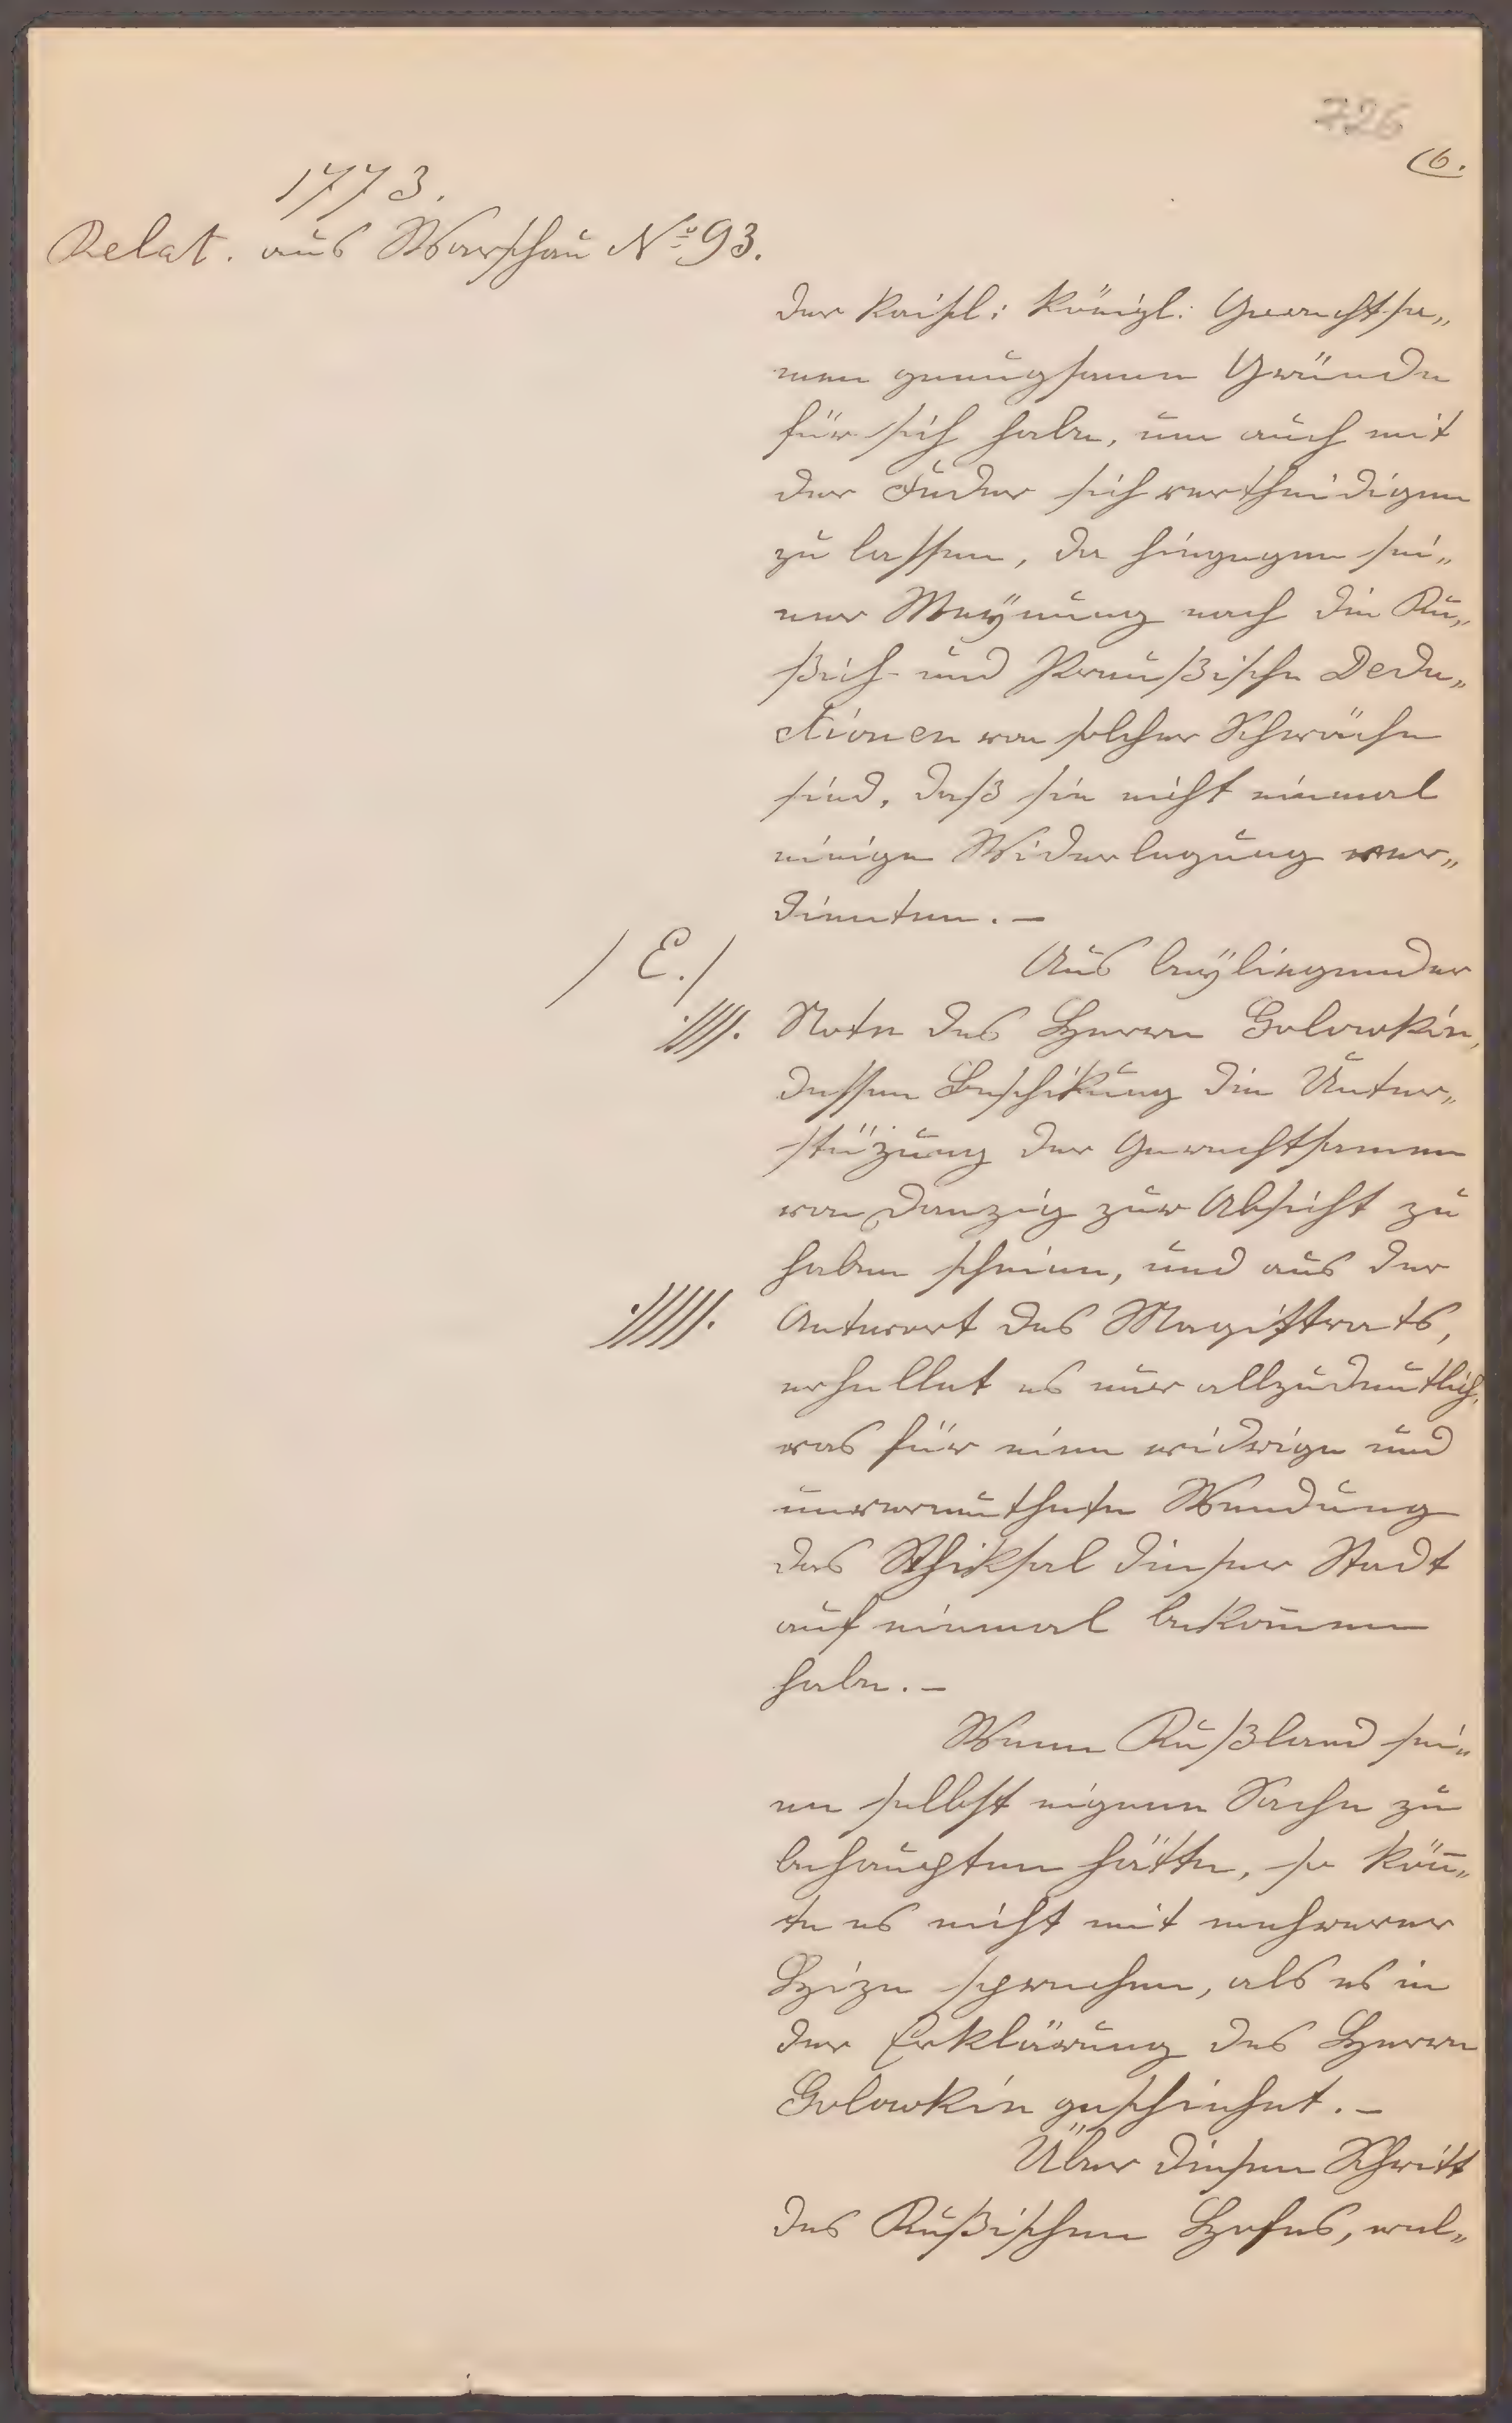 726
6.
1773.
Relat. aus Warschau No 93.
der Kaisl: Königl: Gerechtsa„
men genugsamen Gründe
für sich habe, um auch mit
der Feder sich vertheidigen
zu lassen, da hingegen sei„
ner Meÿnung nach die Ru„
ßisch- und Preußische Dedu„
ctionen von solcher Schwäche
sind, daß sie nicht einmal
einige Widerlegung ver„
dienten. –
/ E. /
Aus beÿliegender
.////. Note des Herrn Golowkin,
dessen Beschikung die Unter„
stüzung der Gerechtsamen
von Danzig zur Absicht zu
haben scheine, und aus der
./////. Antwort des Magistrats,
erhellet es nur allzudeutlich,
was für eine widrige und
unvermuthete Wendung
das Schiksal dieser Stadt
auf einmal bekommen
habe. –
Wenn Rußland sei„
ne selbst eigene Sache zu
behaupten hätte, so kön„
te es nicht mit mehrerer
Hize sprechen, als es in
der Erklärung des Herrn
Golowkin geschiehet. –
Über diesen Schritt
des Rußischen Hofes, wel„